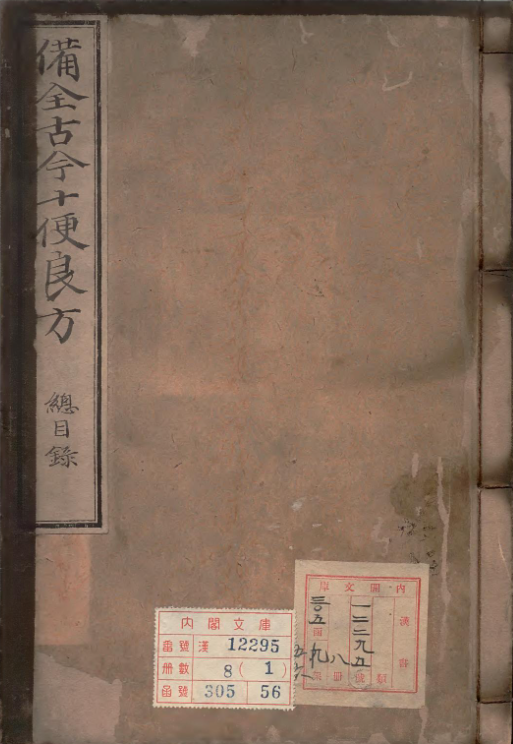 備全古今十便良方
總目錄
內閣文庫
番號 漢 12295
冊數 8(1)
函號 305 56
內閣文庫
漢書
一二二九五
八
三〇五
九